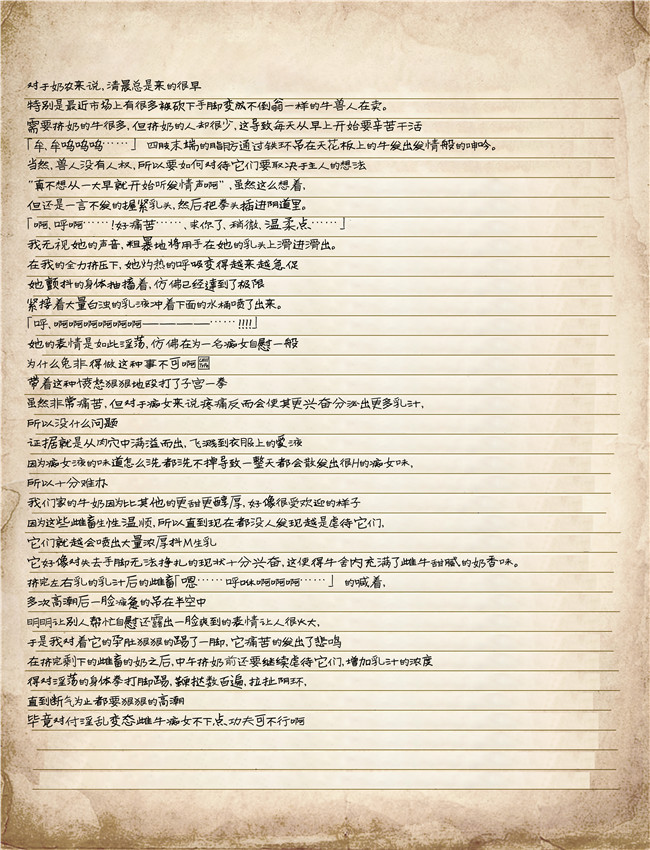 对于奶农来说，清晨总是来的很早
特别是最近市场上有很多被砍下手脚变成不倒翁一样的牛兽人在卖。
需要挤奶的牛很多，但挤奶的人却很少，这导致每天从早上开始要辛苦干活
「牟，牟呜呜呜……」 四肢末端的脂肪方通过铁环吊在天花板上的牛发出发情般的呻吟。
当然，兽人没有人权，所以要如何对待它们要取决于主人的想法
“真不想从一大早就开始听发情声啊”，虽然这么想着，
但还是一言不发的握紧乳头，然后把拳头插进阴道里。
「啊、呼啊……！好痛苦……、求你了、稍微、温柔点……」
我无视她的声音，粗暴地将用手在她的乳头上滑进滑出。
在我的全力挤压下，她灼热的呼吸变得越来越急促
她颤抖的身体抽搐着，仿佛已经达到了极限
紧接着大量白浊的乳液冲着下面的水桶喷了出来。
「呼、啊啊啊啊啊啊啊————……!!!!」
她的表情是如此淫荡，仿佛在为一名痴女自慰一般
为什么兔非得做这种事不可啊
带着这种愤怒狠狠地殴打了子宫一拳
虽然非常痛苦，但对于痴女来说疼痛反而会使其更兴奋分泌出更多乳汁，
所以没什么问题
证据就是从肉穴中满溢而出，飞溅到衣服上的爱液
因为痴女液的味道怎么洗都洗不掉导致一整天都会散发出很H的痴女味，
所以十分难办
我们家的牛奶因为比其他的更甜更醇厚，好像很受欢迎的样子
因为这些雌畜生性温顺，所以直到现在都没人发现越是虐待它们，
它们就越会喷出大量浓厚抖M生乳
它好像对失去手脚无法挣扎的现状十分兴奋，这使得牛舍内充满了雌牛甜腻的奶香味。
挤完左右乳的乳汁后的雌畜「嗯……呼咻啊啊啊……」 的喊着，
多次高潮后一脸疲惫的吊在半空中
明明让别人帮忙自慰还露出一脸爽到的表情让人很火大，
于是我对着它的孕肚狠狠的踢了一脚，它痛苦的发出了悲鸣
在挤完剩下的雌畜的奶之后，中午挤奶前还要继续虐待它们，增加乳汁的浓度
得对淫荡的身体拳打脚踢，鞭挞数百遍，拉扯阴环，
直到断气为止都要狠狠的高潮
毕竟对付淫乱变态雌牛痴女不下点功夫可不行啊